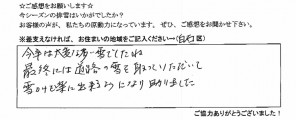 ☆ご感想をお願いします☆
今シーズンの排雪はいかがでしたか?
お客様の声が、私たちの原動力になっています。ぜひ、ご感想をお聞かせ下さい。
※差支えなければ、お住まいの地域をご記入ください→(白石区)
今年は大変な雪でしたね
最終には道路の雪を取っていただいて
雪かきも楽に出来るようになり助かりました
ご協力ありがとうございました!